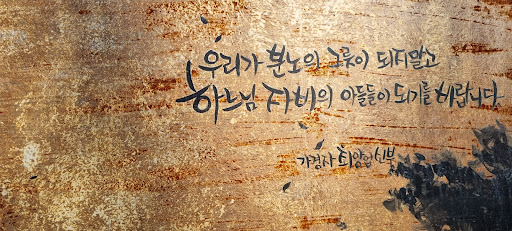 우리가 분노의 그릇이 되지말고
하느님 자비의 이들들이 되기를 바랍니다.
가경자 최양업 신부